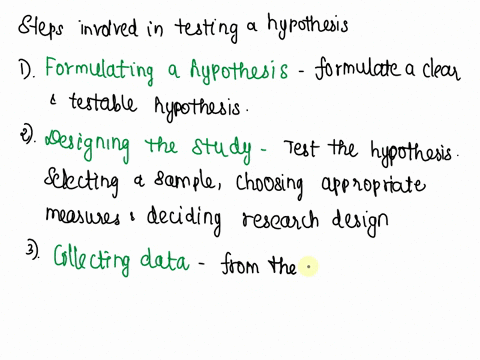 Steps involved in testing a hypothesis
1). Formulating a hypothesis - formulate a clear
& testable hypothesis.
2). Designing the study - Test the hypothesis.
Selecting a sample, choosing appropriate
measures & deciding research design
3). Collecting data - from the